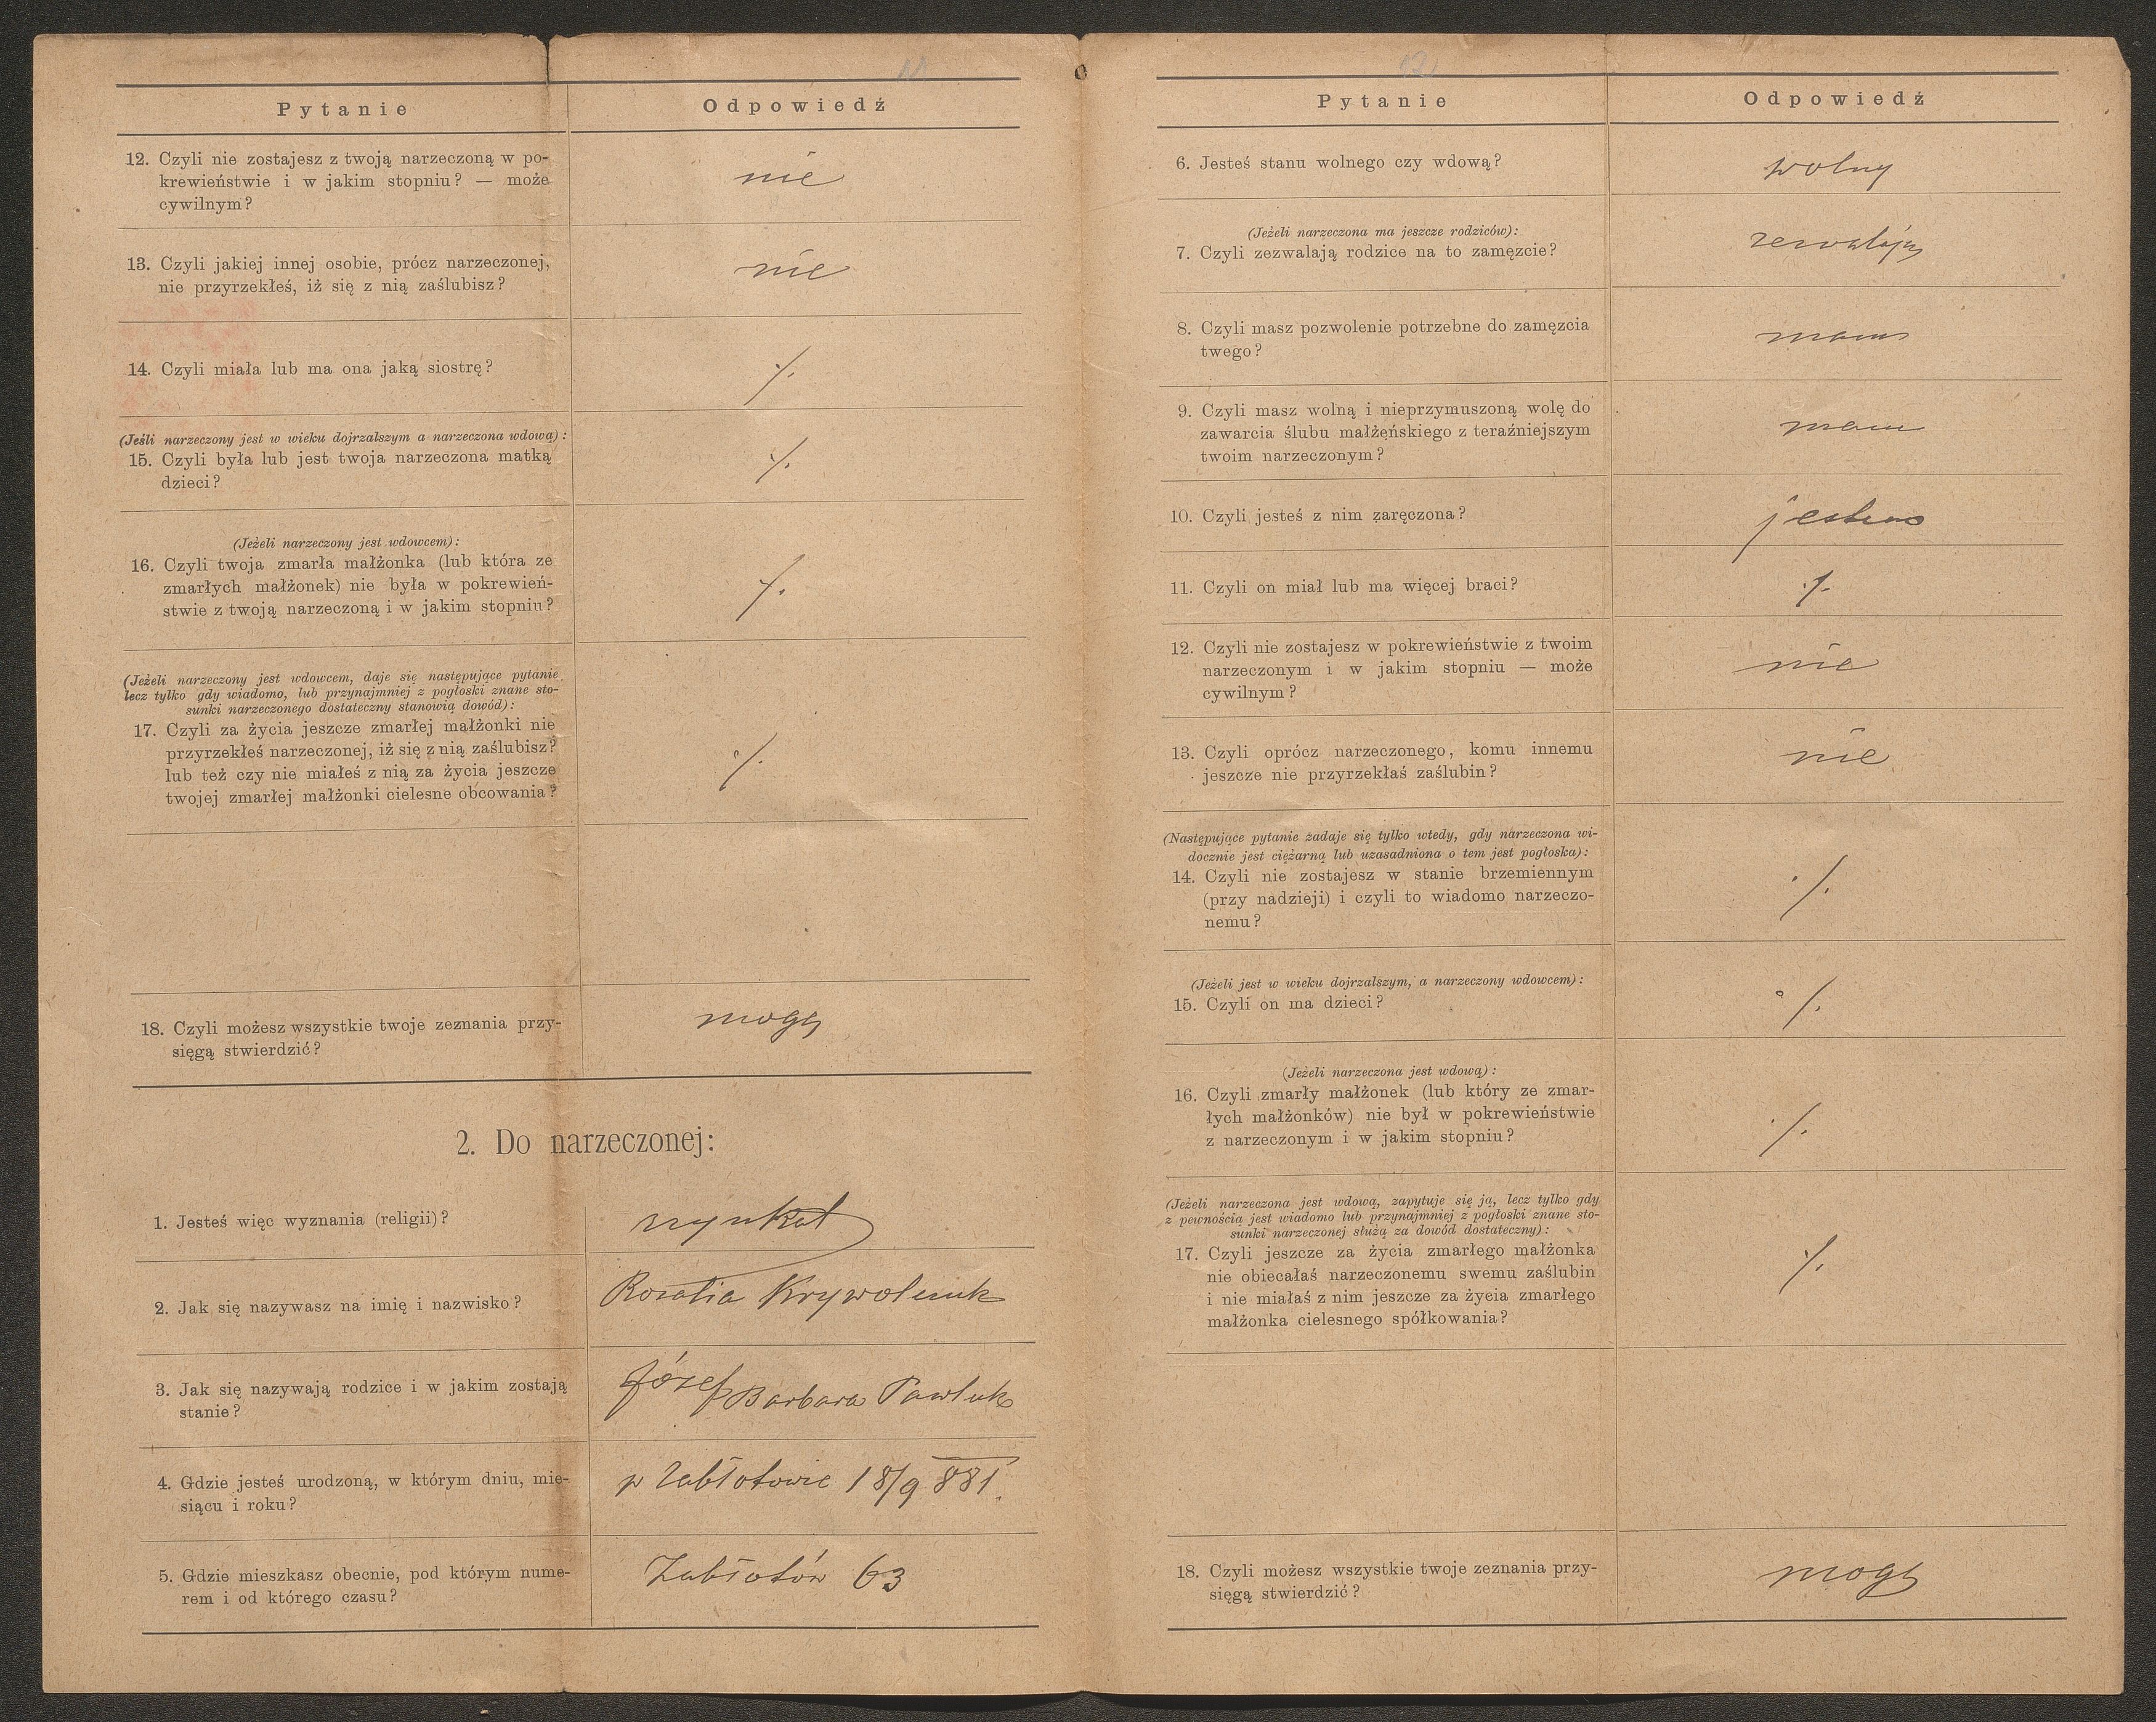 Pytanie
Odpowiedź
12. Czyli nie zostajesz z twoją narzeczoną w po-
krewieństwie i w jakim stopniu? — może
cywilnym?
nie
13. Czyli jakiej innej osobie, prócz narzeczonej,
nie przyrzekłeś, iż się z nią zaślubisz?
nie
14. Czyli miała lub ma ona jaką siostrę?
·/.
(Jeśli narzeczony jest w wieku dojrzalszym a narzeczona wdową):
15. Czyli była lub jest twoja narzeczona matką
dzieci?
·/.
(Jeżeli narzeczony jest wdowcem):
16. Czyli twoja zmarła małżonka (lub która ze
zmarłych małżonek) nie była w pokrewień-
stwie z twoją narzeczoną i w jakim stopniu?
·/.
(Jeżeli narzeczony jest wdowcem, daje się następujące pytanie
lecz tylko gdy wiadomo, lub przynajmniej z pogłoski znane sto-
sunki narzeczonego dostateczny stanowią dowód):
17. Czyli za życia jeszcze zmarłej małżonki nie
przyrzekłeś narzeczonej, iż się z nią zaślubisz?
lub też czy nie miałeś z nią za życia jeszcze
twojej zmarłej małżonki cielesne obcowania?
·/.
18. Czyli możesz wszystkie twoje zeznania przy-
sięgą stwierdzić?
mogę
2. Do narzeczonej:
1. Jesteś więc wyznania (religii)?
2. Jak się nazywasz na imię i nazwisko?
Rozalia Krywoleńuk
3. Jak się nazywają rodzice i w jakim zostają
stanie?
Józef Barbara Pawluk
4. Gdzie jesteś urodzoną, w którym dniu, mie-
siącu i roku?
w Zabłotowie 18/9 881.
5. Gdzie mieszkasz obecnie, pod którym nume-
rem i od którego czasu?
Zabłotów 63
Pytanie
Odpowiedź
6. Jesteś stanu wolnego czy wdową?
wolny
(Jeżeli narzeczona ma jeszcze rodziców):
7. Czyli zezwalają rodzice na to zamęzcie?
zezwalają
8. Czyli masz pozwolenie potrzebne do zamęzcia
twego?
mam
9. Czyli masz wolną i nieprzymuszoną wolę do
zawarcia ślubu małżeńskiego z teraźniejszym
twoim narzeczonym?
mam
10. Czyli jesteś z nim zaręczona?
jestem
11. Czyli on miał lub ma więcej braci?
·/.
12. Czyli nie zostajesz w pokrewieństwie z twoim
narzeczonym i w jakim stopniu — może
cywilnym?
nie
13. Czyli oprócz narzeczonego, komu innemu
jeszcze nie przyrzekłaś zaślubin?
nie
(Następujące pytanie zadaje się tylko wtedy, gdy narzeczona wi-
docznie jest ciężarną lub uzasadniona o tem jest pogłoska):
14. Czyli nie zostajesz w stanie brzemiennym
(przy nadzieji) i czyli to wiadomo narzeczo-
nemu?
·/.
(Jeżeli jest w wieku dojrzalszym, a narzeczony wdowcem):
15. Czyli on ma dzieci?
·/.
(Jeżeli narzeczona jest wdową):
16. Czyli zmarły małżonek (lub który ze zmar-
łych małżonków) nie był w pokrewieństwie
z narzeczonym i w jakim stopniu?
·/.
(Jeżeli narzeczona jest wdową, zapytuje się ją, lecz tylko gdy
z pewnością jest wiadomo lub przynajmniej z pogłoski znane sto-
sunki narzeczonej służą za dowód dostateczny):
17. Czyli jeszcze za życia zmarłego małżonka
nie obiecałaś narzeczonemu swemu zaślubin
i nie miałaś z nim jeszcze za życia zmarłego
małżonka cielesnego spółkowania?
·/.
18. Czyli możesz wszystkie twoje zeznania przy-
sięgą stwierdzić?
mogę